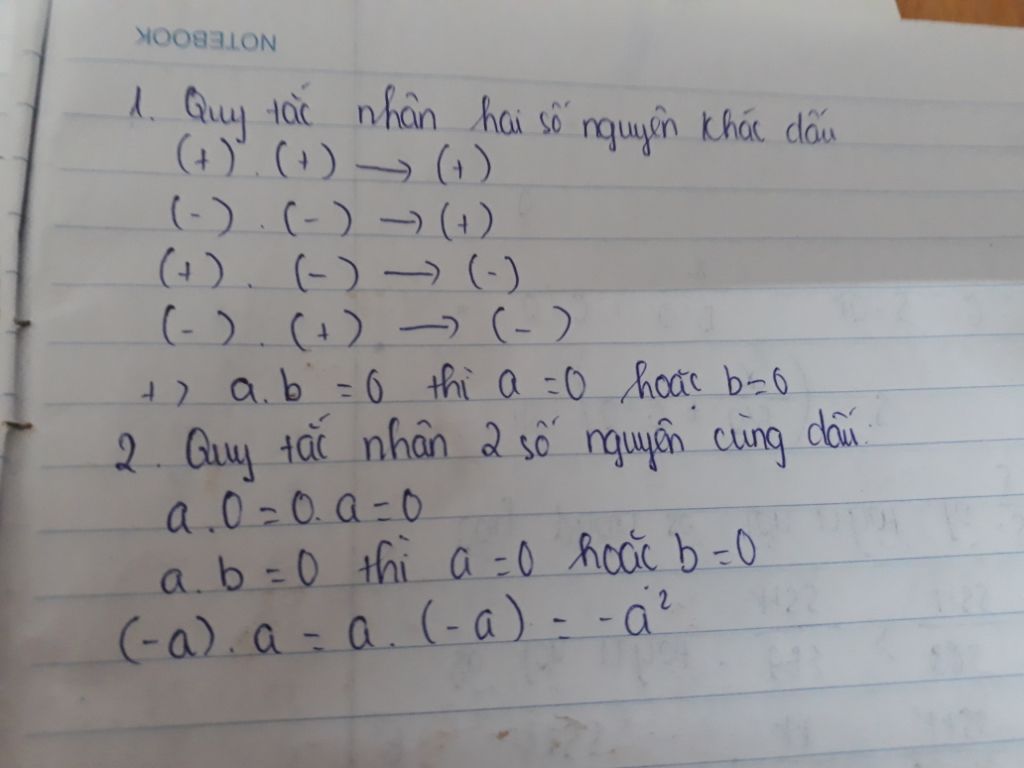 NOTEBOOK
1. Quy tắc nhân hai số nguyên khác dấu
(+) . (+) → (+)
(-) . (-) → (+)
(+) . (-) → (-)
(-) . (+) → (-)
+> a.b = 0 thì a = 0 hoặc b = 0
2. Quy tắc nhân 2 số nguyên cùng dấu:
a.0 = 0.a = 0
a.b = 0 thì a = 0 hoặc b = 0
(-a).a = a.(-a) = -a²